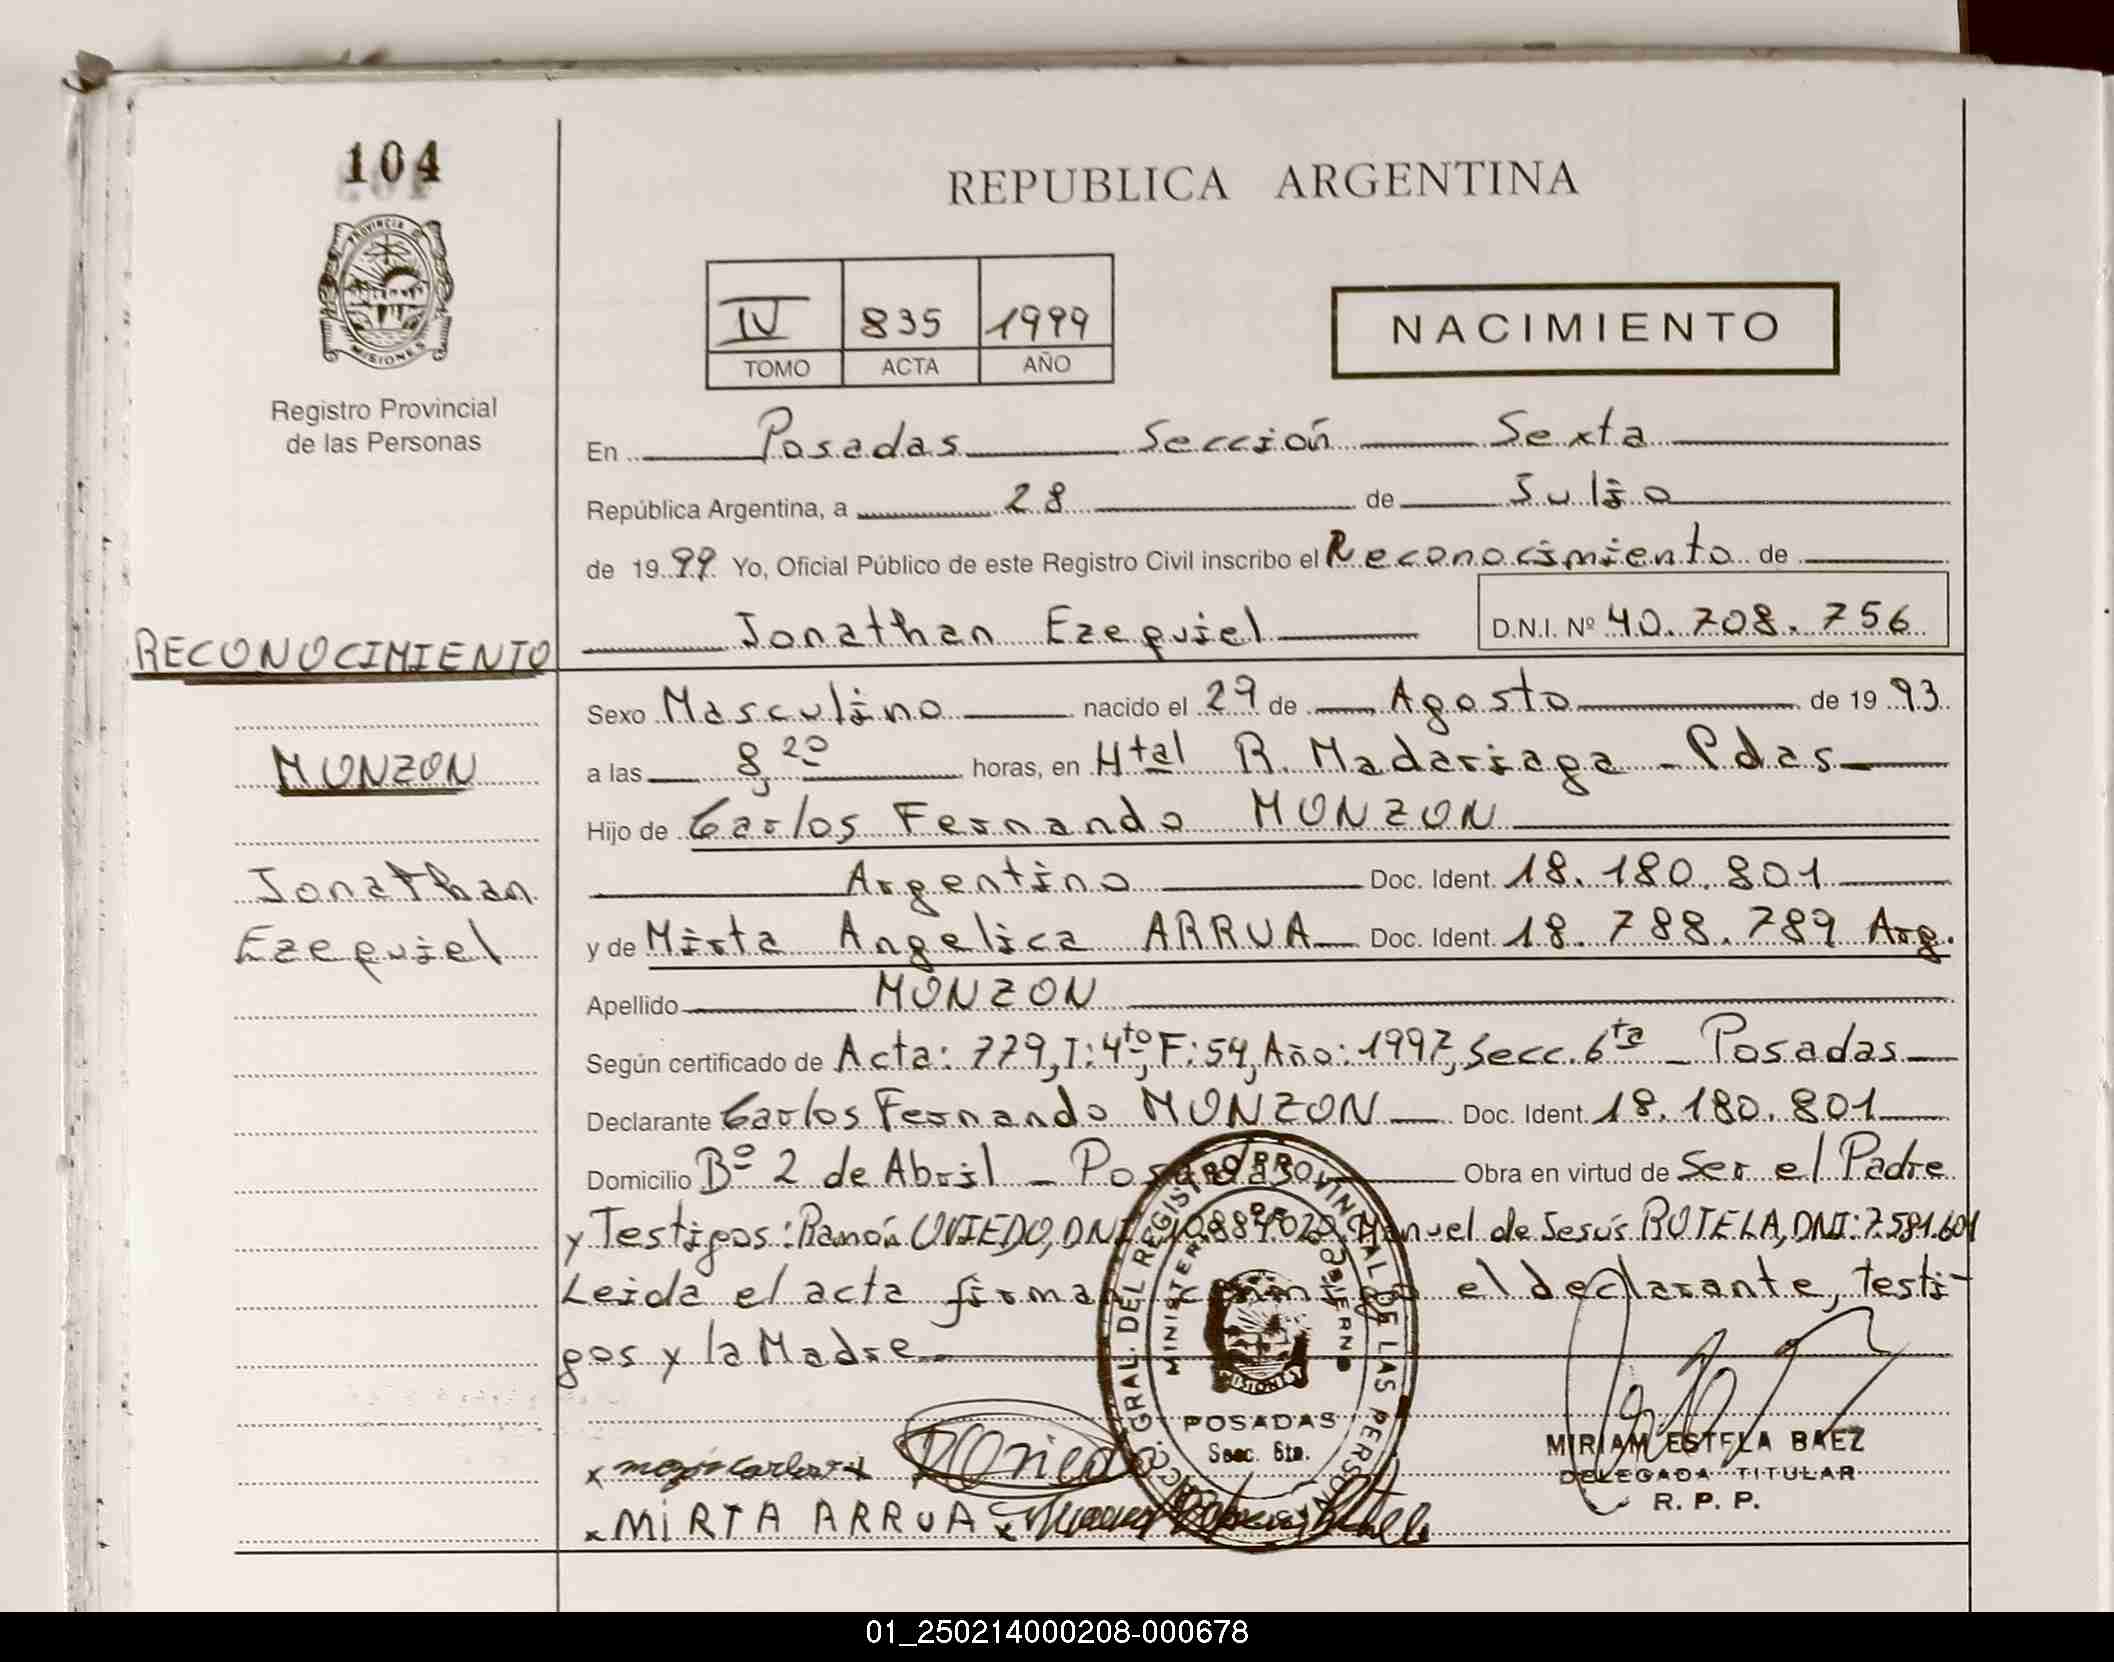 104
PROVINCIA D
MISIONES
Registro Provincial
de las Personas
REPUBLICA ARGENTINA
IV 835 1999
TOMO ACTA AÑO
NACIMIENTO
En Posadas Sección Sexta
República Argentina, a 28 de Julio
de 1999 Yo, Oficial Público de este Registro Civil inscribo el Reconocimiento de
Jonathan Ezequiel D.N.I. Nº 40.708.756
RECONOCIMIENTO
MONZON
Jonathan
Ezequiel
Sexo Masculino nacido el 29 de Agosto de 1993
a las 8,20 horas, en Htal R. Madariaga - Pdas
Hijo de Carlos Fernando MONZON
Argentino Doc. Ident. 18.180.801
y de Mirta Angelica ARRUA Doc. Ident. 18.788.789 Arg.
Apellido MONZON
Según certificado de Acta: 779, T: 4to, F: 54, Año: 1997, Secc. 6ta - Posadas
Declarante Carlos Fernando MONZON Doc. Ident. 18.180.801
Domicilio Bº 2 de Abril - Posadas Obra en virtud de Ser el Padre
y Testigos: Ramón OVIEDO, DNI: Manuel de Jesús ROTELA, DNI: 7.581.601
Leida el acta firman conmigo el declarante, testi-
gos y la Madre
GRAL. DEL REGISTRO PROVINCIAL DE LAS PERSON
MINISTERI DE GOBIERNO
MISIONES
POSADAS
Secc. 6ta.
MIRIAM ESTELA BAEZ
DELEGADA TITULAR
R. P. P.
x MIRTA ARRUA x
01_250214000208-000678